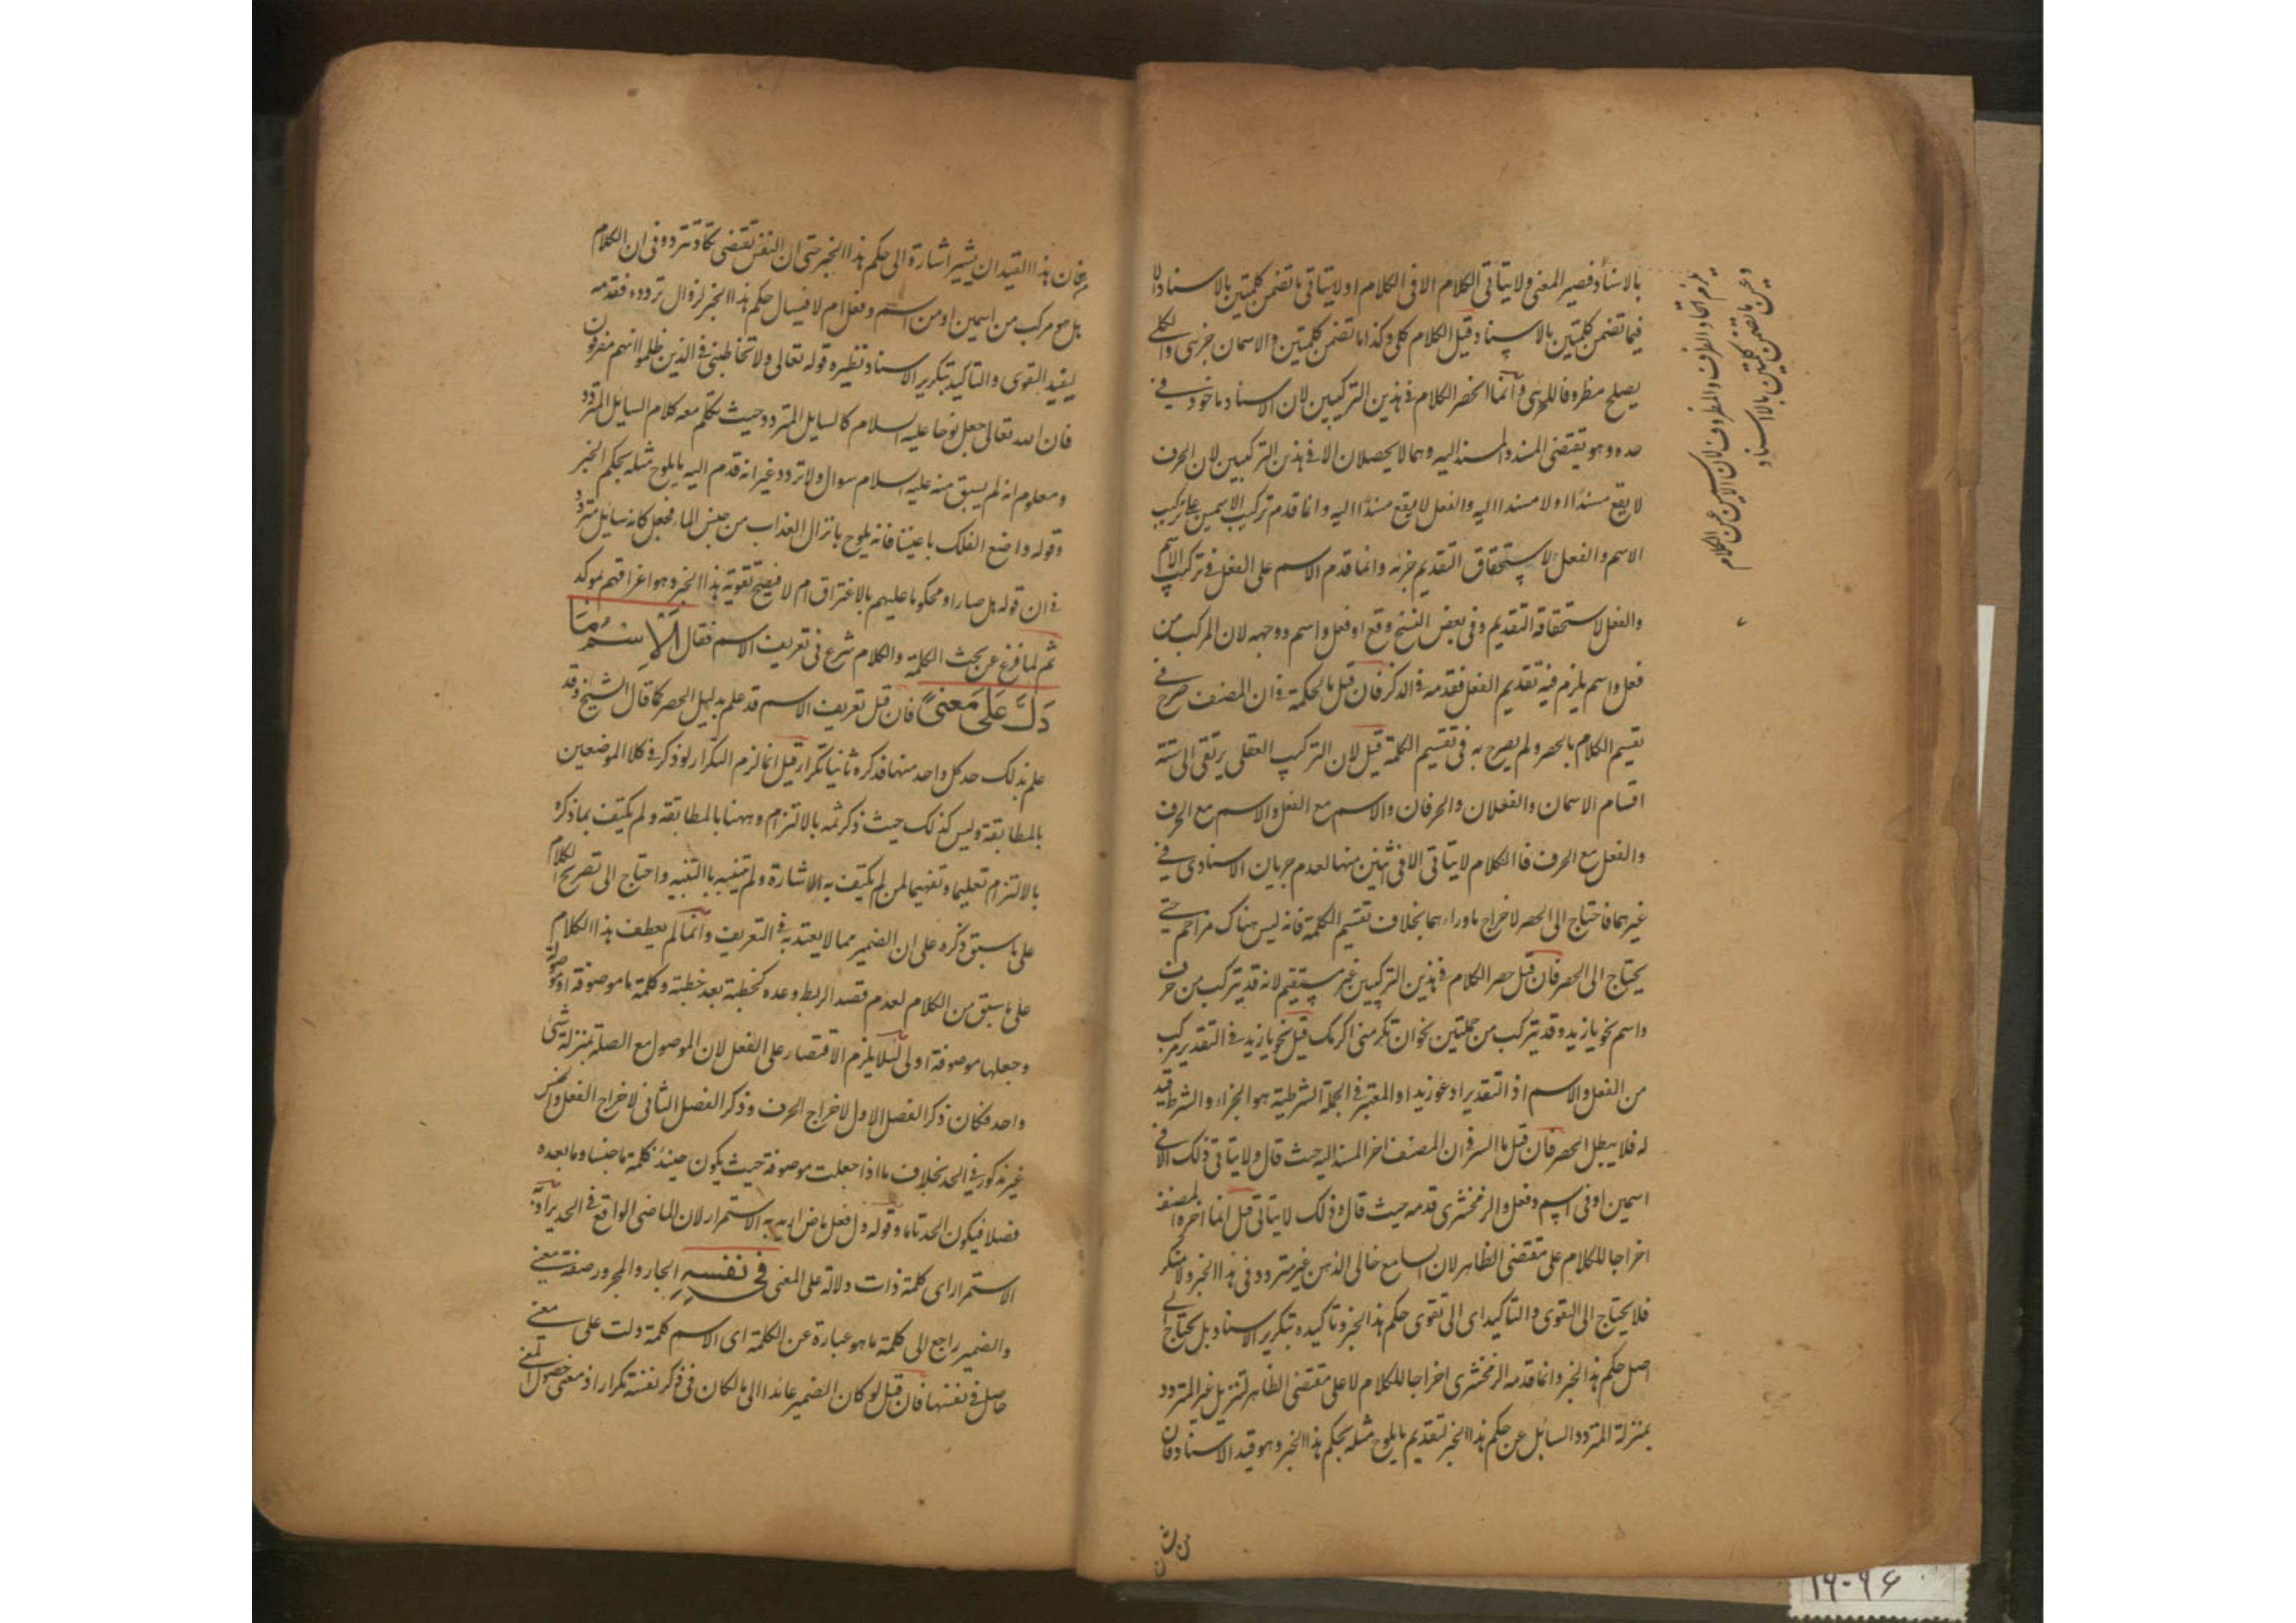 بالاسناد فصير المعنى ولا يتاتى الكلام الا فى الكلام او لا يتاتى ما تضمن كلمتين بالاسناد الا
فيما تضمن كلمتين بالاسناد قيل الكلام كلى وكذا ما تضمن كلمتين والاسمان جزئى والكلى
يصلح مظروفا للجزئى وانما انحصر الكلام فى هذين التركيبين لان الاسناد ماخوذ فى
حده وهو يقتضى المسند والمسند اليه وهما لا يحصلان الا فى هذين التركيبين لان الحرف
لا يقع مسندا ولا مسندا اليه والفعل لا يقع مسندا اليه وانما قدم تركيب الاسمين على تركيب
الاسم والفعل لاستحقاق التقديم جزئه وانما قدم الاسم على الفعل فى تركيب الاسم
والفعل لاستحقاقه التقديم وفى بعض النسخ وقع او فعل واسم ووجهه لان المركب من
فعل واسم يلزم فيه تقديم الفعل فقدمه فى الذكر فان قيل ما الحكمة فى ان المصنف صرح فى
تقسيم الكلام بالحصر ولم يصرح به فى تقسيم الكلمة قيل لان التركيب العقلى يرتقى الى ستة
اقسام الاسمان والفعلان والحرفان والاسم مع الفعل والاسم مع الحرف
والفعل مع الحرف فالكلام لا يتاتى الا فى اثنين منها لعدم جريان الاسناد فى
غيرهما فاحتاج الى الحصر لاخراج ما وراءهما بخلاف تقسيم الكلمة فانه ليس هناك مزاحم حتى
يحتاج الى الحصر فان قيل حصر الكلام فى هذين التركيبين غير مستقيم لانه قد يتركب من حرف
واسم نحو يا زيد وقد يتركب من جملتين نحو ان تكرمنى اكرمك قيل نحو يا زيد فى التقدير مركب
من الفعل والاسم اذ التقدير ادعو زيدا والمعتبر فى الجملة الشرطية هو الجزاء والشرط قيد
له فلا يبطل الحصر فان قيل ما السر فى ان المصنف اخر المسند اليه حيث قال ولا يتاتى ذلك الا فى
اسمين او فى اسم وفعل والزمخشرى قدمه حيث قال وذلك لا يتاتى قيل انما اخره المصنف
اخراجا للكلام على مقتضى الظاهر لان السامع خالى الذهن غير متردد فى هذا الخبر ولا منكر
فلا يحتاج الى التقوى والتاكيد اى الى تقوى حكم هذا الخبر وتاكيده بتكرير الاسناد بل يحتاج الى
اصل حكم هذا الخبر وانما قدمه الزمخشرى اخراجا للكلام لا على مقتضى الظاهر لتنزيل غير المتردد
بمنزلة المتردد السائل عن حكم هذا الخبر لتقديم ما يلوح مثله بحكم هذا الخبر وهو قيد الاسناد فان
يلزم اتحاد الظرف والمظروف لان الاسمين عين الكلام
وعين ما تضمن كلمتين بالاسناد
هذا القيد ان يشير اشارة الى حكم هذا الخبر حتى ان النفس تقتضى تكاد تتردد فى ان الكلام
بل هو مركب من اسمين او من اسم وفعل ام لا فيسال حكم هذا الخبر لزوال تردده فقدمه
ليفيد التقوى والتاكيد بتكرير الاسناد نظيره قوله تعالى ولا تخاطبنى فى الذين ظلموا انهم مغرقون
فان الله تعالى جعل نوحا عليه السلام كالسايل المتردد حيث تكلم معه كلام السايل المتردد
ومعلوم انه لم يسبق منه عليه السلام سوال ولا تردد غير انه قدم اليه ما يلوح مثله بحكم الخبر
وقوله واصنع الفلك باعيننا فانه يلوح بانزال العذاب من جنس الماء فجعل كانه سائل متردد
فى ان قوله هل صاروا محكوما عليهم بالاغراق ام لا فيصح تقوية هذا الخبر وهو اغراقهم بموكد
ثم لما فرغ عن بحث الكلمة والكلام شرع فى تعريف الاسم فقال اَلْاِسْمُ مَا
دَلَّ عَلٰى مَعْنًى فان قيل تعريف الاسم قد علم بدليل الحصر كما قال الشيخ وقد
علم بذلك حد كل واحد منها فذكره ثانيا تكرار قيل انما لزم التكرار لو ذكر فى كلا الموضعين
بالمطابقة وليس كذلك حيث ذكر ثمه بالالتزام وههنا بالمطابقة ولم يكتف بما ذكره
بالالتزام تعليما وتفهيما لمن لم يكتف به الاشارة ولم يتنبه بالتنبيه واحتاج الى تصريح الكلام
على ما سبق ذكره على ان الضمير مما لا يعتد به فى التعريف وانما لم يعطف هذا الكلام
على ما سبق من الكلام لعدم قصد الربط وعده كخطبة بعد خطبة وكلمة ما موصوفة او موصولة
وجعلها موصوفة اولى لئلا يلزم الاقتصار على الفعل لان الموصول مع الصلة بمنزلة شئ
واحد فكان ذكر الفصل الاول لاخراج الحرف وذكر الفصل الثانى لاخراج الفعل والجنس
غير مذكور فى الحد بخلاف ما اذا جعلت موصوفة حيث يكون حينئذ كلمة ما جنسا وما بعده
فصلا فيكون الحد تاما وقوله دل فعل ماض اريد به الاستمرار لان الماضى الواقع فى الحد يراد به
الاستمرار اى كلمة ذات دلالة على المعنى فِى نَفْسِهِ الجار والمجرور صفة معنى
والضمير راجع الى كلمة ما هو عبارة عن الكلمة اى الاسم كلمة دلت على معنى
حاصل فى نفسها فان قيل لو كان الضمير عائدا الى ما لكان فى ذكر نفسه تكرارا اذ معنى حصول المعنى
۱۹-۹۶